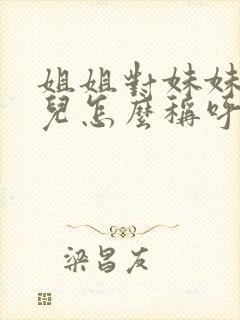 姐姐對妹妹
兒怎麼稱呼
梁昌友